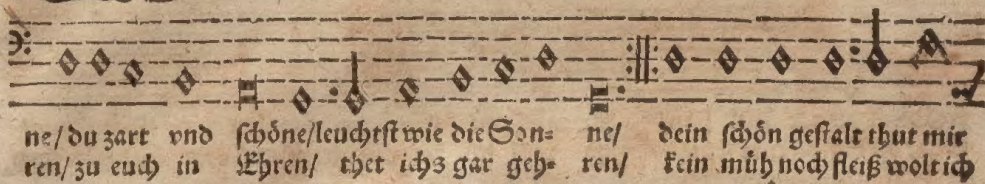 ne/ du zart vnd schöne/ leuchtst wie die Son= ne/ dein schön gestalt thut mir
ren/ zu euch in Ehren/ thet ichs gar geh= ren/ kein müh noch fleiß wolt ich